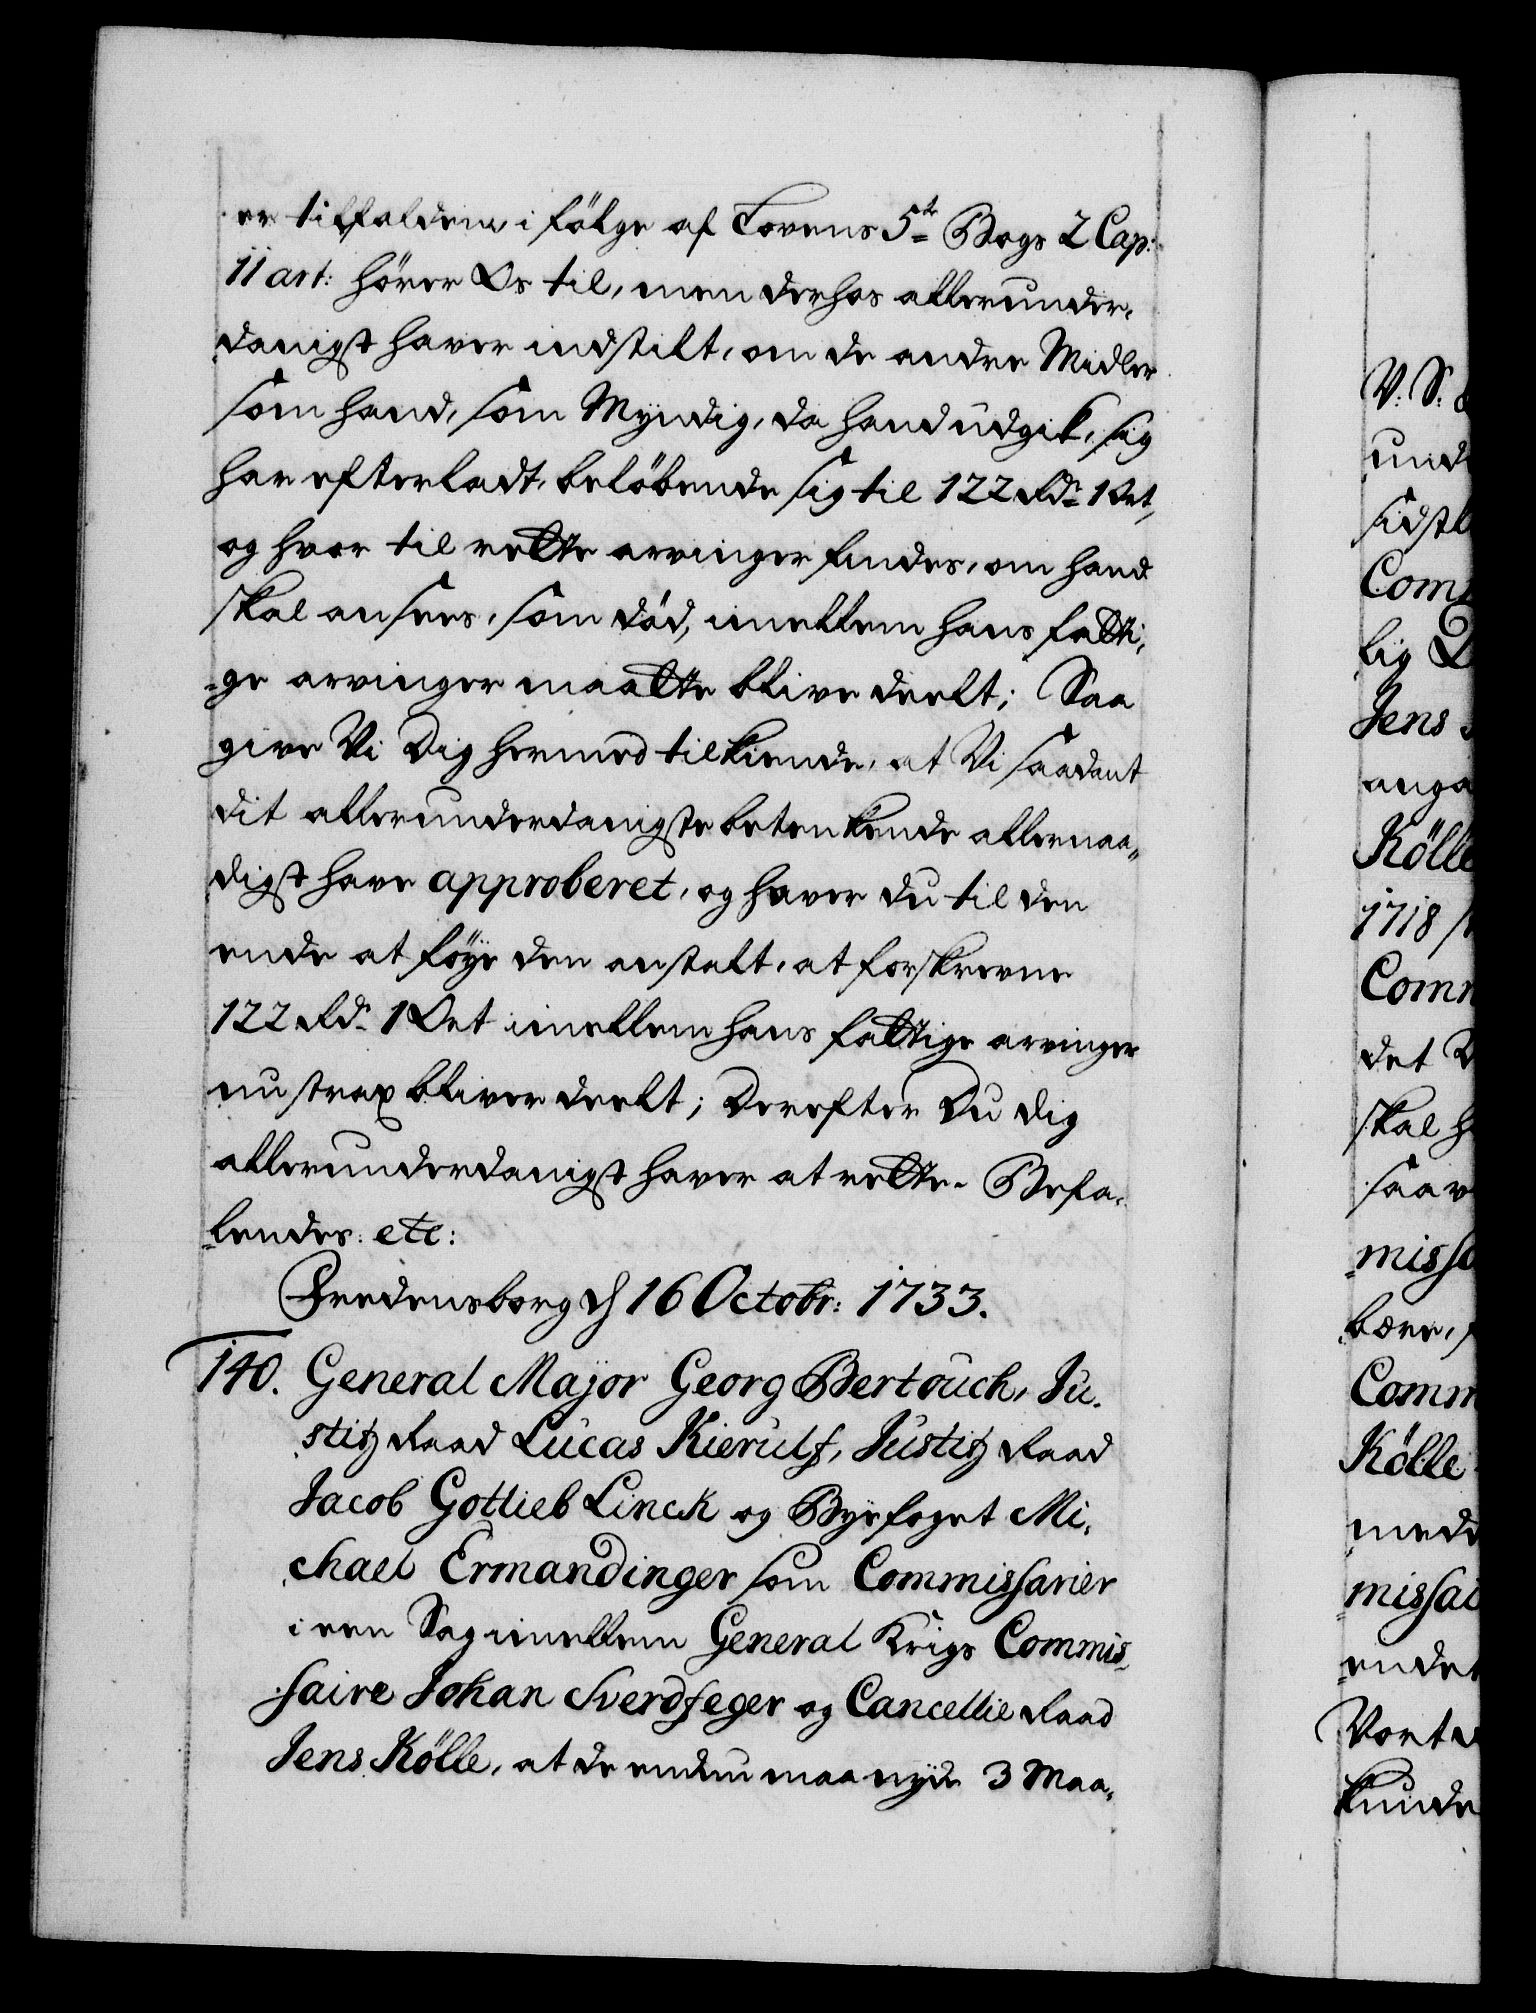 er tilfalden, i fölge af Lovens 5te Bogs 2 Cap:
11 art: hörer Os til, men derhos allerunder-
danigst haver indstilt, om de andre Midler
som hand, som Myndig, da hand udgik, sig
har efterladt, belöbende sig til 122 Rdr 1 Ort,
og hvor til rette arvinger findes, om hand
skal ansees, som död, imellem hans fatti-
ge arvinger maatte blive deelt; Saa
give Vi Dig hermed tilkiende, at Vi saadant
dit allerunderdanigste betenkende allernaa-
digst have approberet, og haver du til den
ende at föye den anstalt, at forskrevne
122 Rdr 1 Ort imellem hans fattige arvinger
nu strax bliver deelt; Derefter Du dig
allerunderdanigst haver at rette. Befa-
lendes: etc:
Fredensborg d 16 Octobr: 1733.
140. General Major Georg Bertouch, Ju-
stitz Raad Lucas Kierulf, Justitz Raad
Jacob Gottlieb Linck og Byefoget Mi-
chael Ermandinger som Commissarier
i een Sag imellem General Krigs Commis-
saire Johan Sverdfeger og Cancellie Raad
Jens Kölle, at de endnu maa nyde 3 Maa-
V: S:
und
sidst
Com
lig
Jens
anga
Kölle
1718
Comm
det
skal h
saav
misso
bære,
Comm
Kölle
medd
missai
endet
Vort
kunde